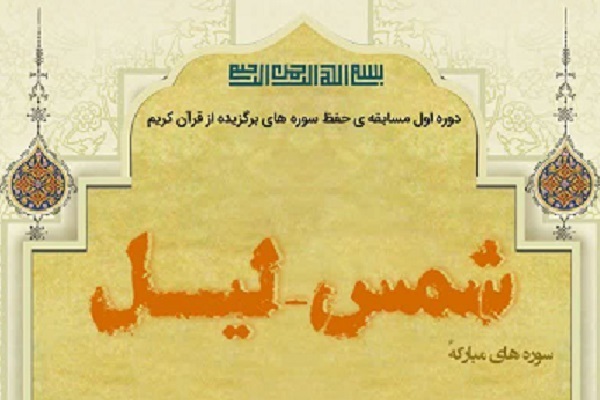 بسم الله الرحمن الرحیم
دوره اول مسابقه ی حفظ سوره های برگزیده از قرآن کریم
شمس - لیل
سوره های مبارکهٔ